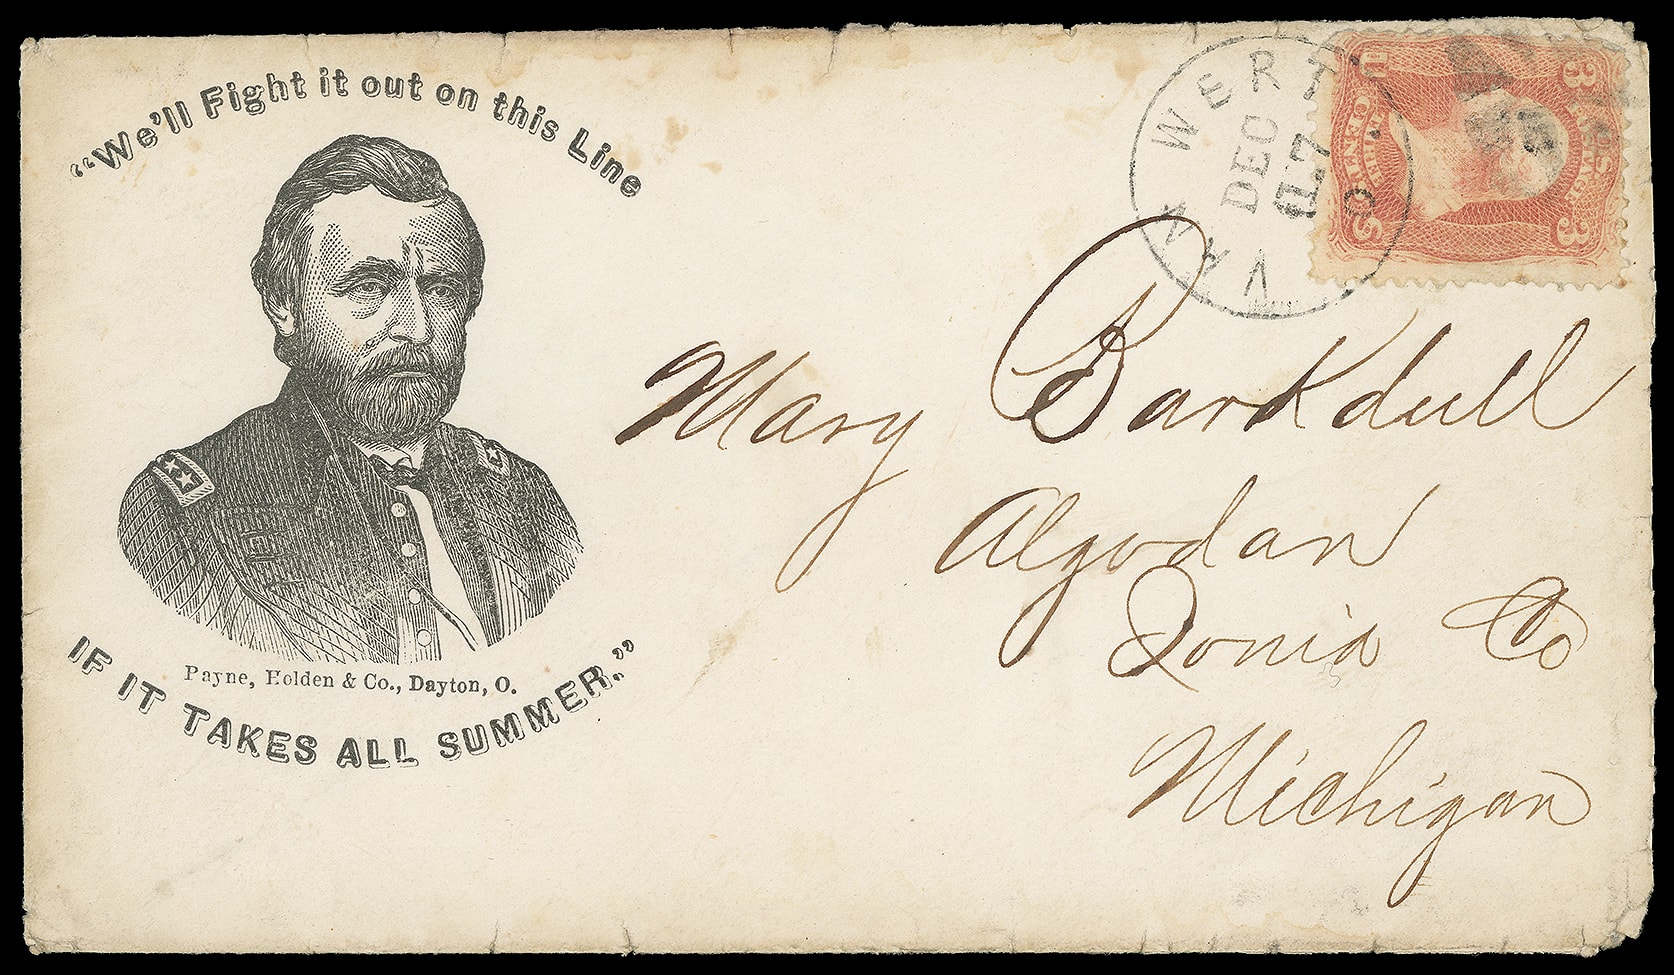 “We'll Fight it out on this Line
Payne, Holden & Co., Dayton, O.
IF IT TAKES ALL SUMMER.”
VAN WERT O.
DEC
17
U.S. POSTAGE
3 3
THREE CENTS
Mary Barkdull
Algodan
Ionia Co
Michigan